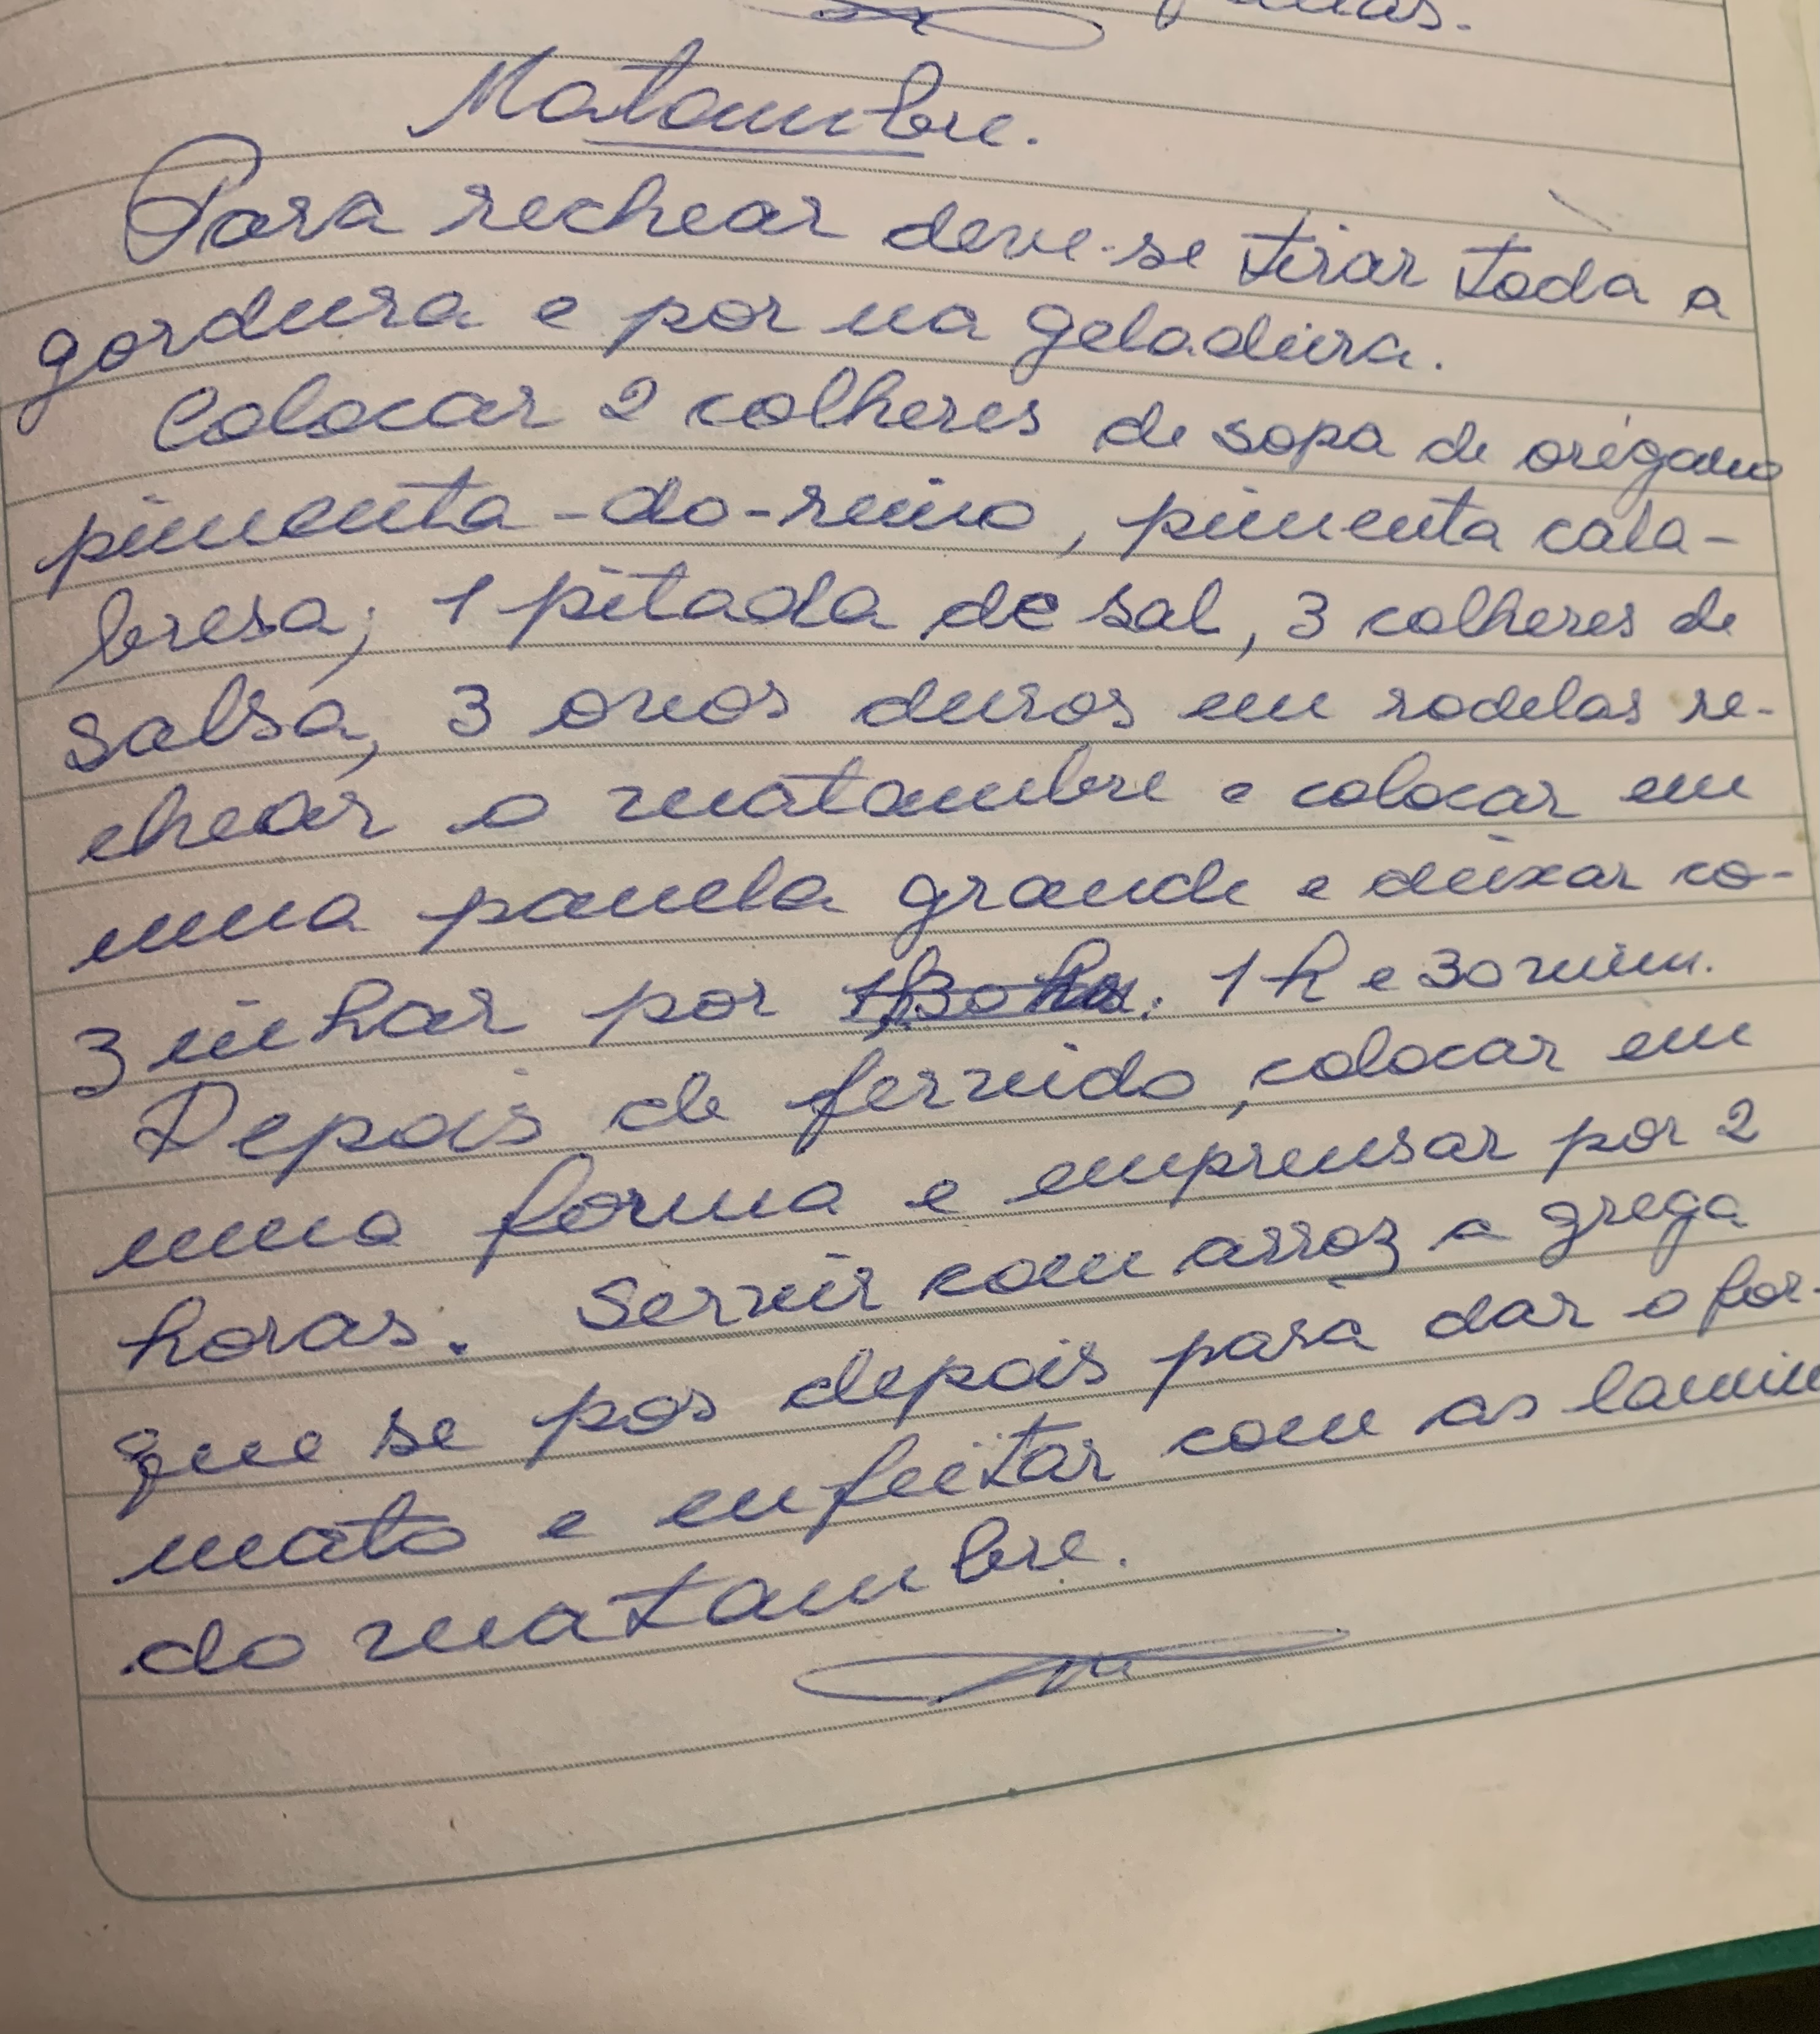 Matambre.
Para rechear deve-se tirar toda a
gordura e por na geladeira.
Colocar 2 colheres de sopa de orégano
pimenta-do-reino, pimenta cala-
bresa, 1 pitada de sal, 3 colheres de
salsa, 3 ovos duros em rodelas re-
chear o matambre e colocar em
uma panela grande e deixar co-
zinhar por 1h e 30 min.
Depois de fervido, colocar em
uma forma e emprensar por 2
horas. Servir com arroz a grega
que se pos depois para dar o for-
mato e enfeitar com as
do matambre.